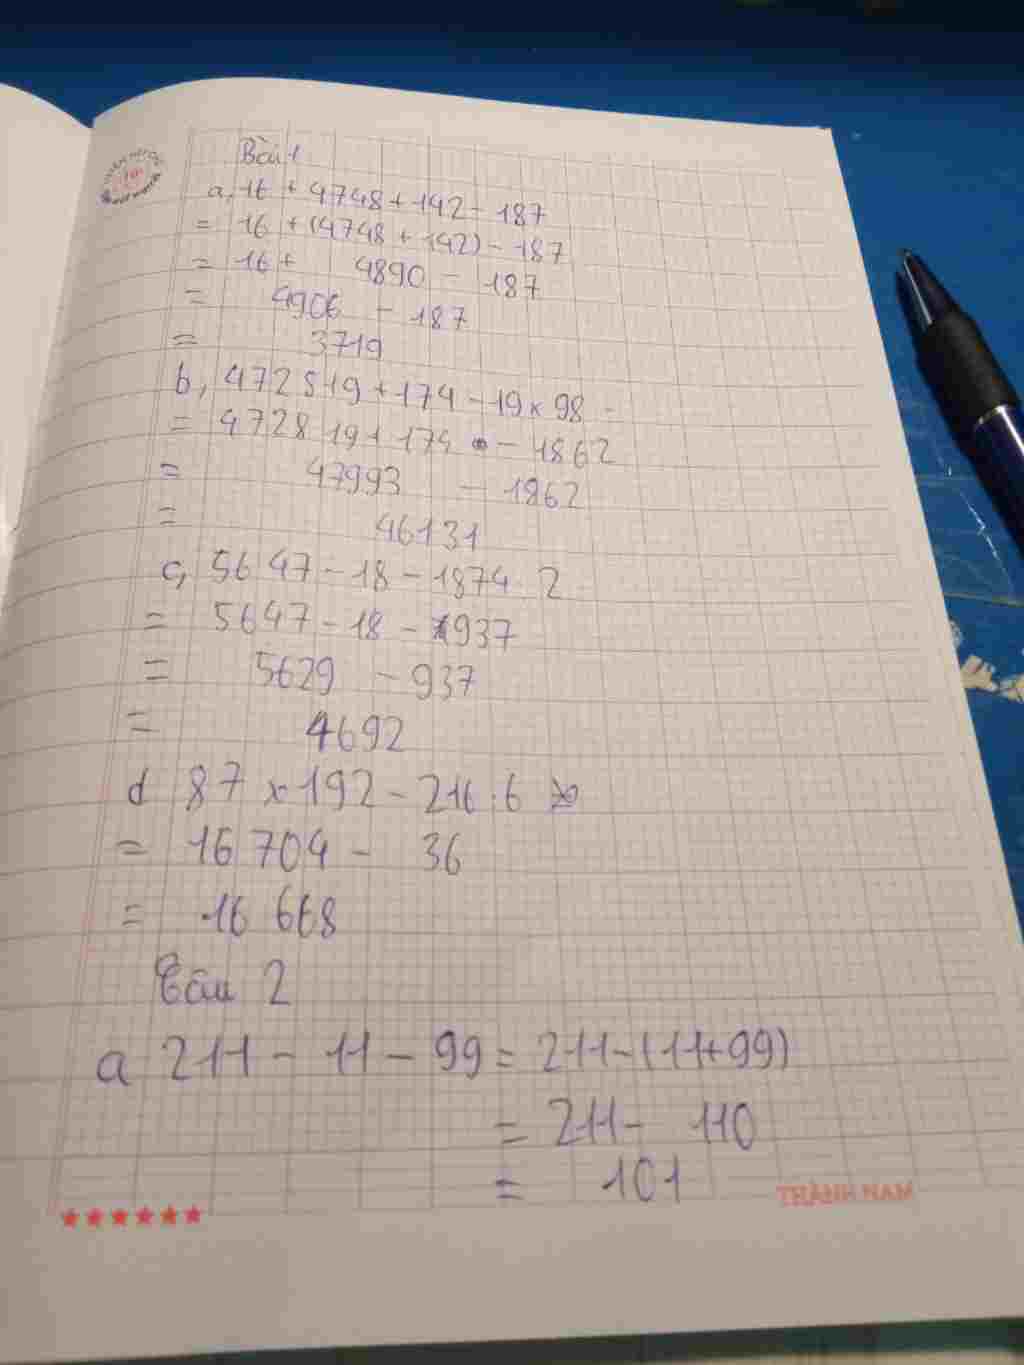 Bài 1
a, 16 + 4748 + 142 - 187
= 16 + (4748 + 142) - 187
= 16 + 4890 - 187
= 4906 - 187
= 3719
b, 472819 + 174 - 19 x 98
= 472819 + 174 - 1862
= 47993 - 1862
= 46131
c, 5647 - 18 - 1874 2
= 5647 - 18 - 937
= 5629 - 937
= 4692
d 87 x 192 - 216 : 6
= 16 704 - 36
= 16 668
Bài 2
a 211 - 11 - 99 = 211 - (11 + 99)
= 211 - 110
= 101
THÀNH NAM